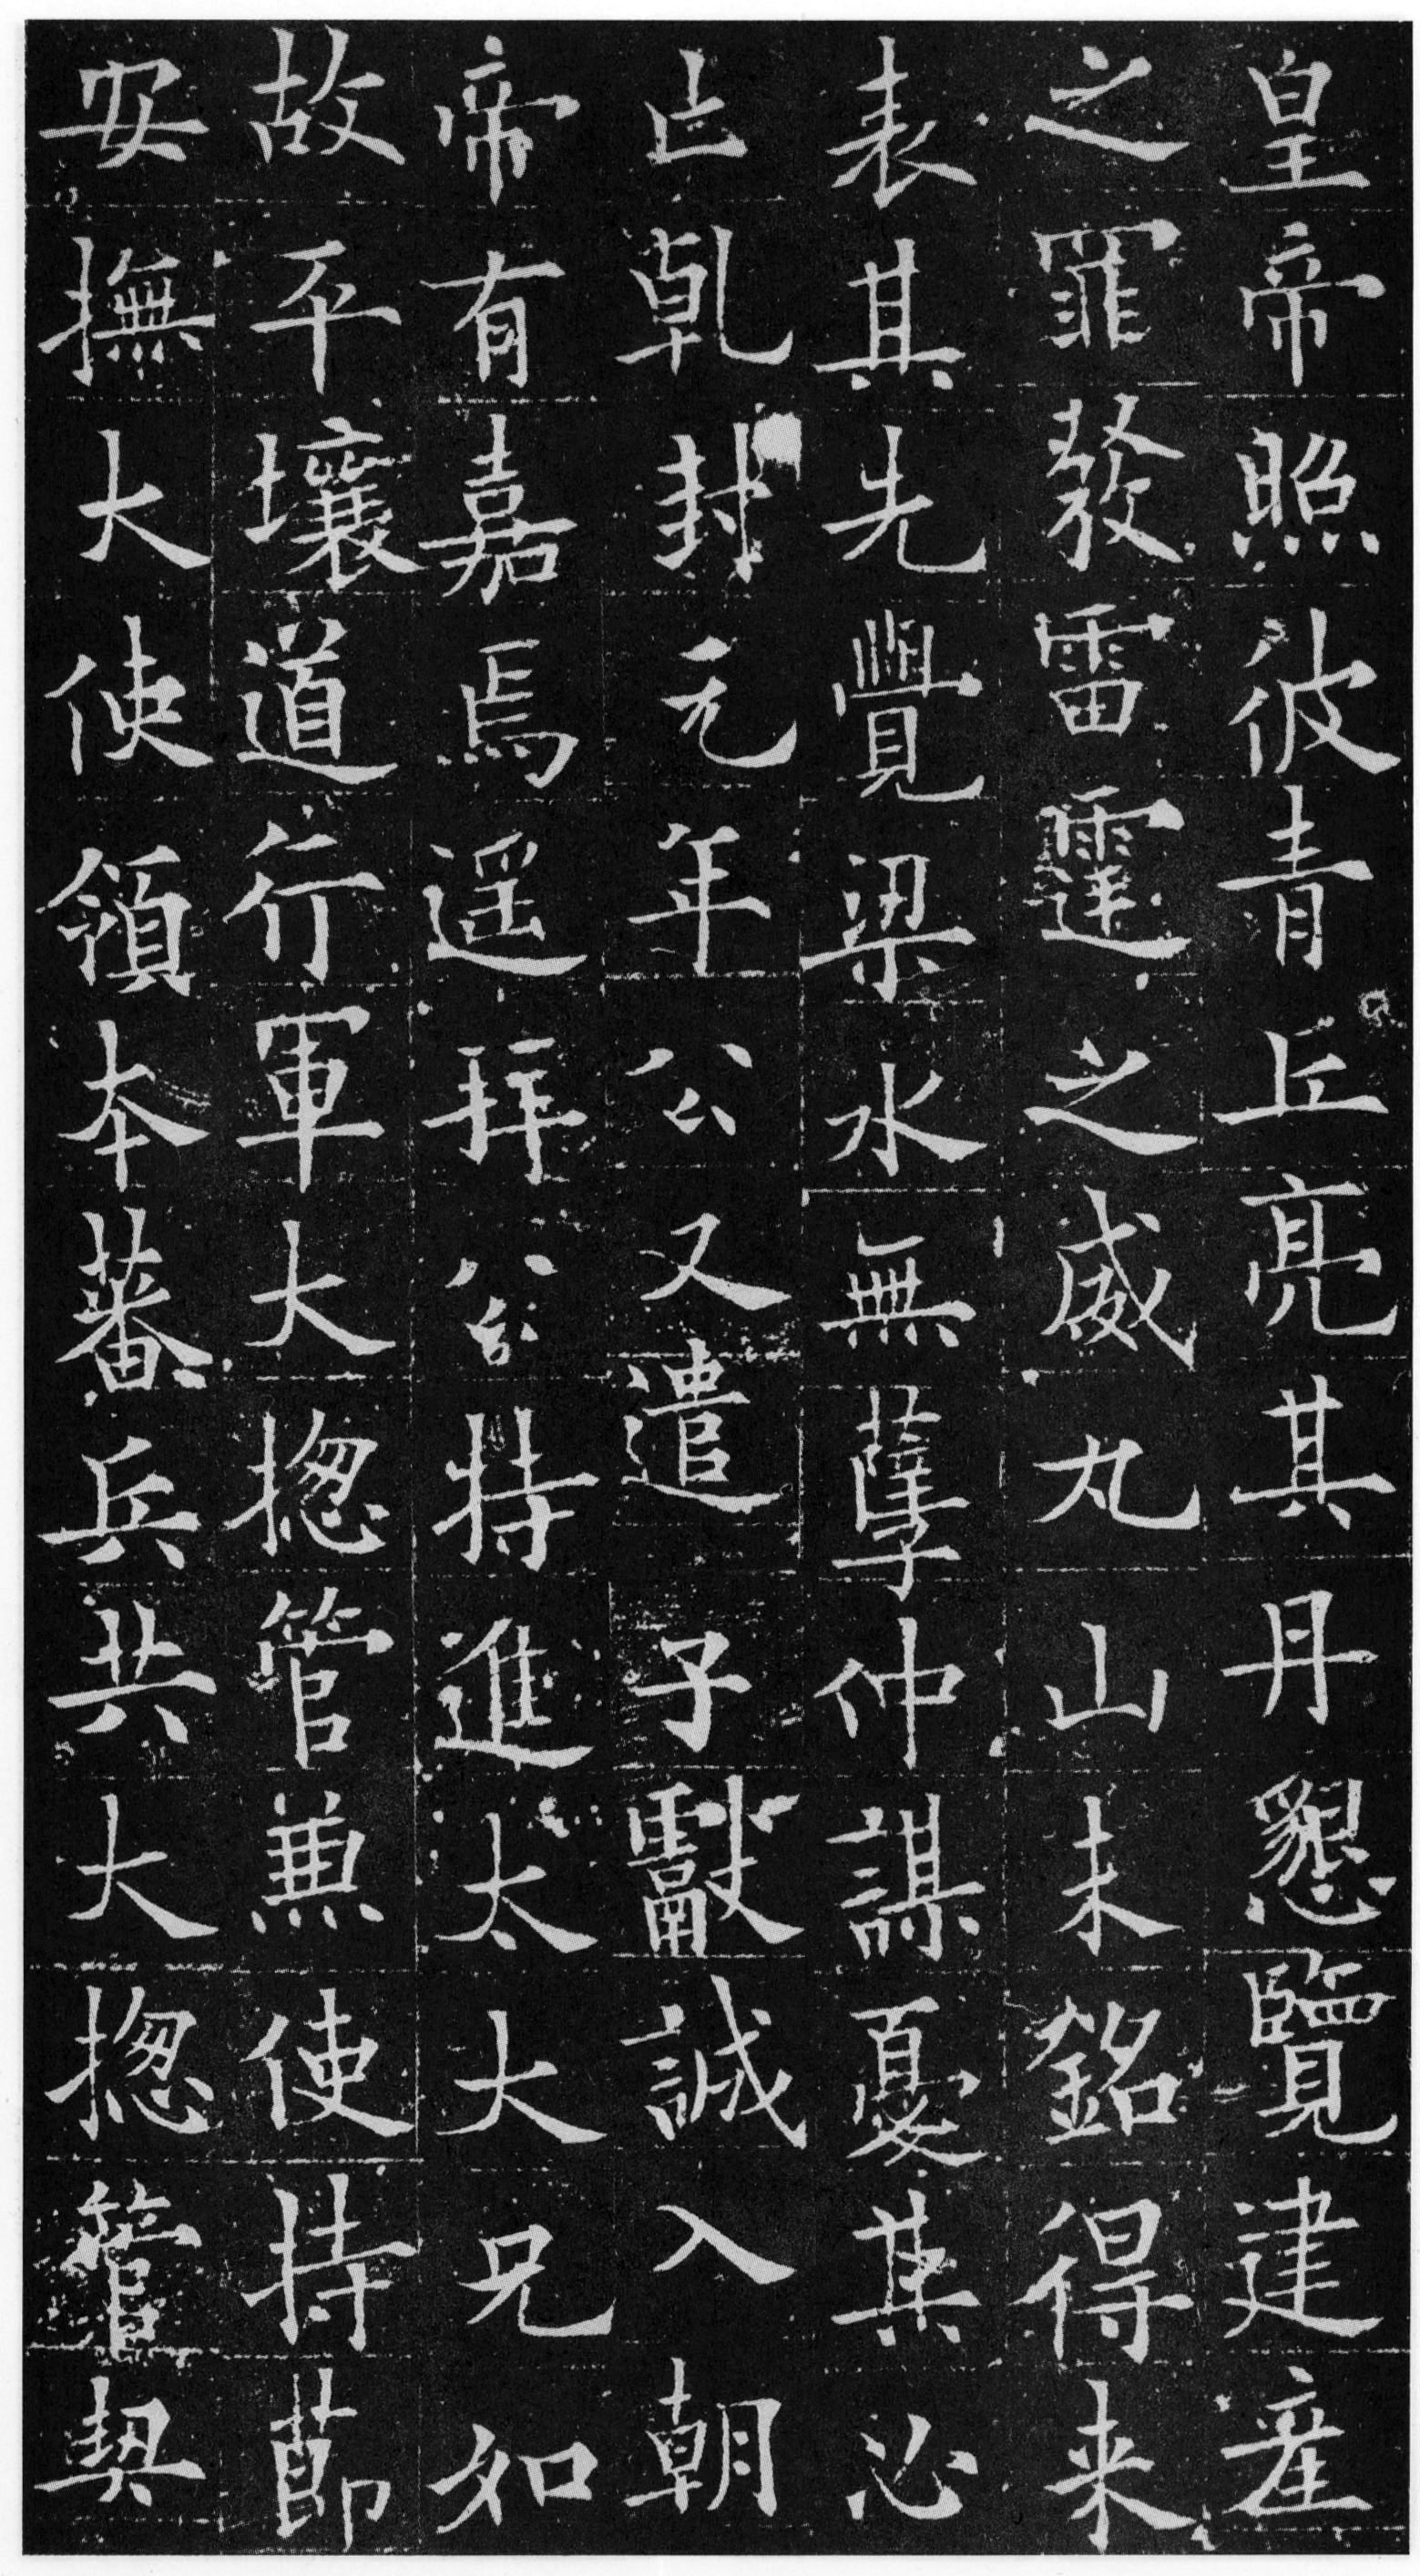 皇帝照彼青丘亮其丹懇覽建産
之罪發雷霆之威丸山未銘得来
表其先覺梁水無孽仲謀憂其必
亡乹封元年公又遣子獻誠入朝
帝有嘉焉遥拜公特進太大兄如
故平壤道行軍大揔管兼使持節
安撫大使領本蕃兵共大揔管契